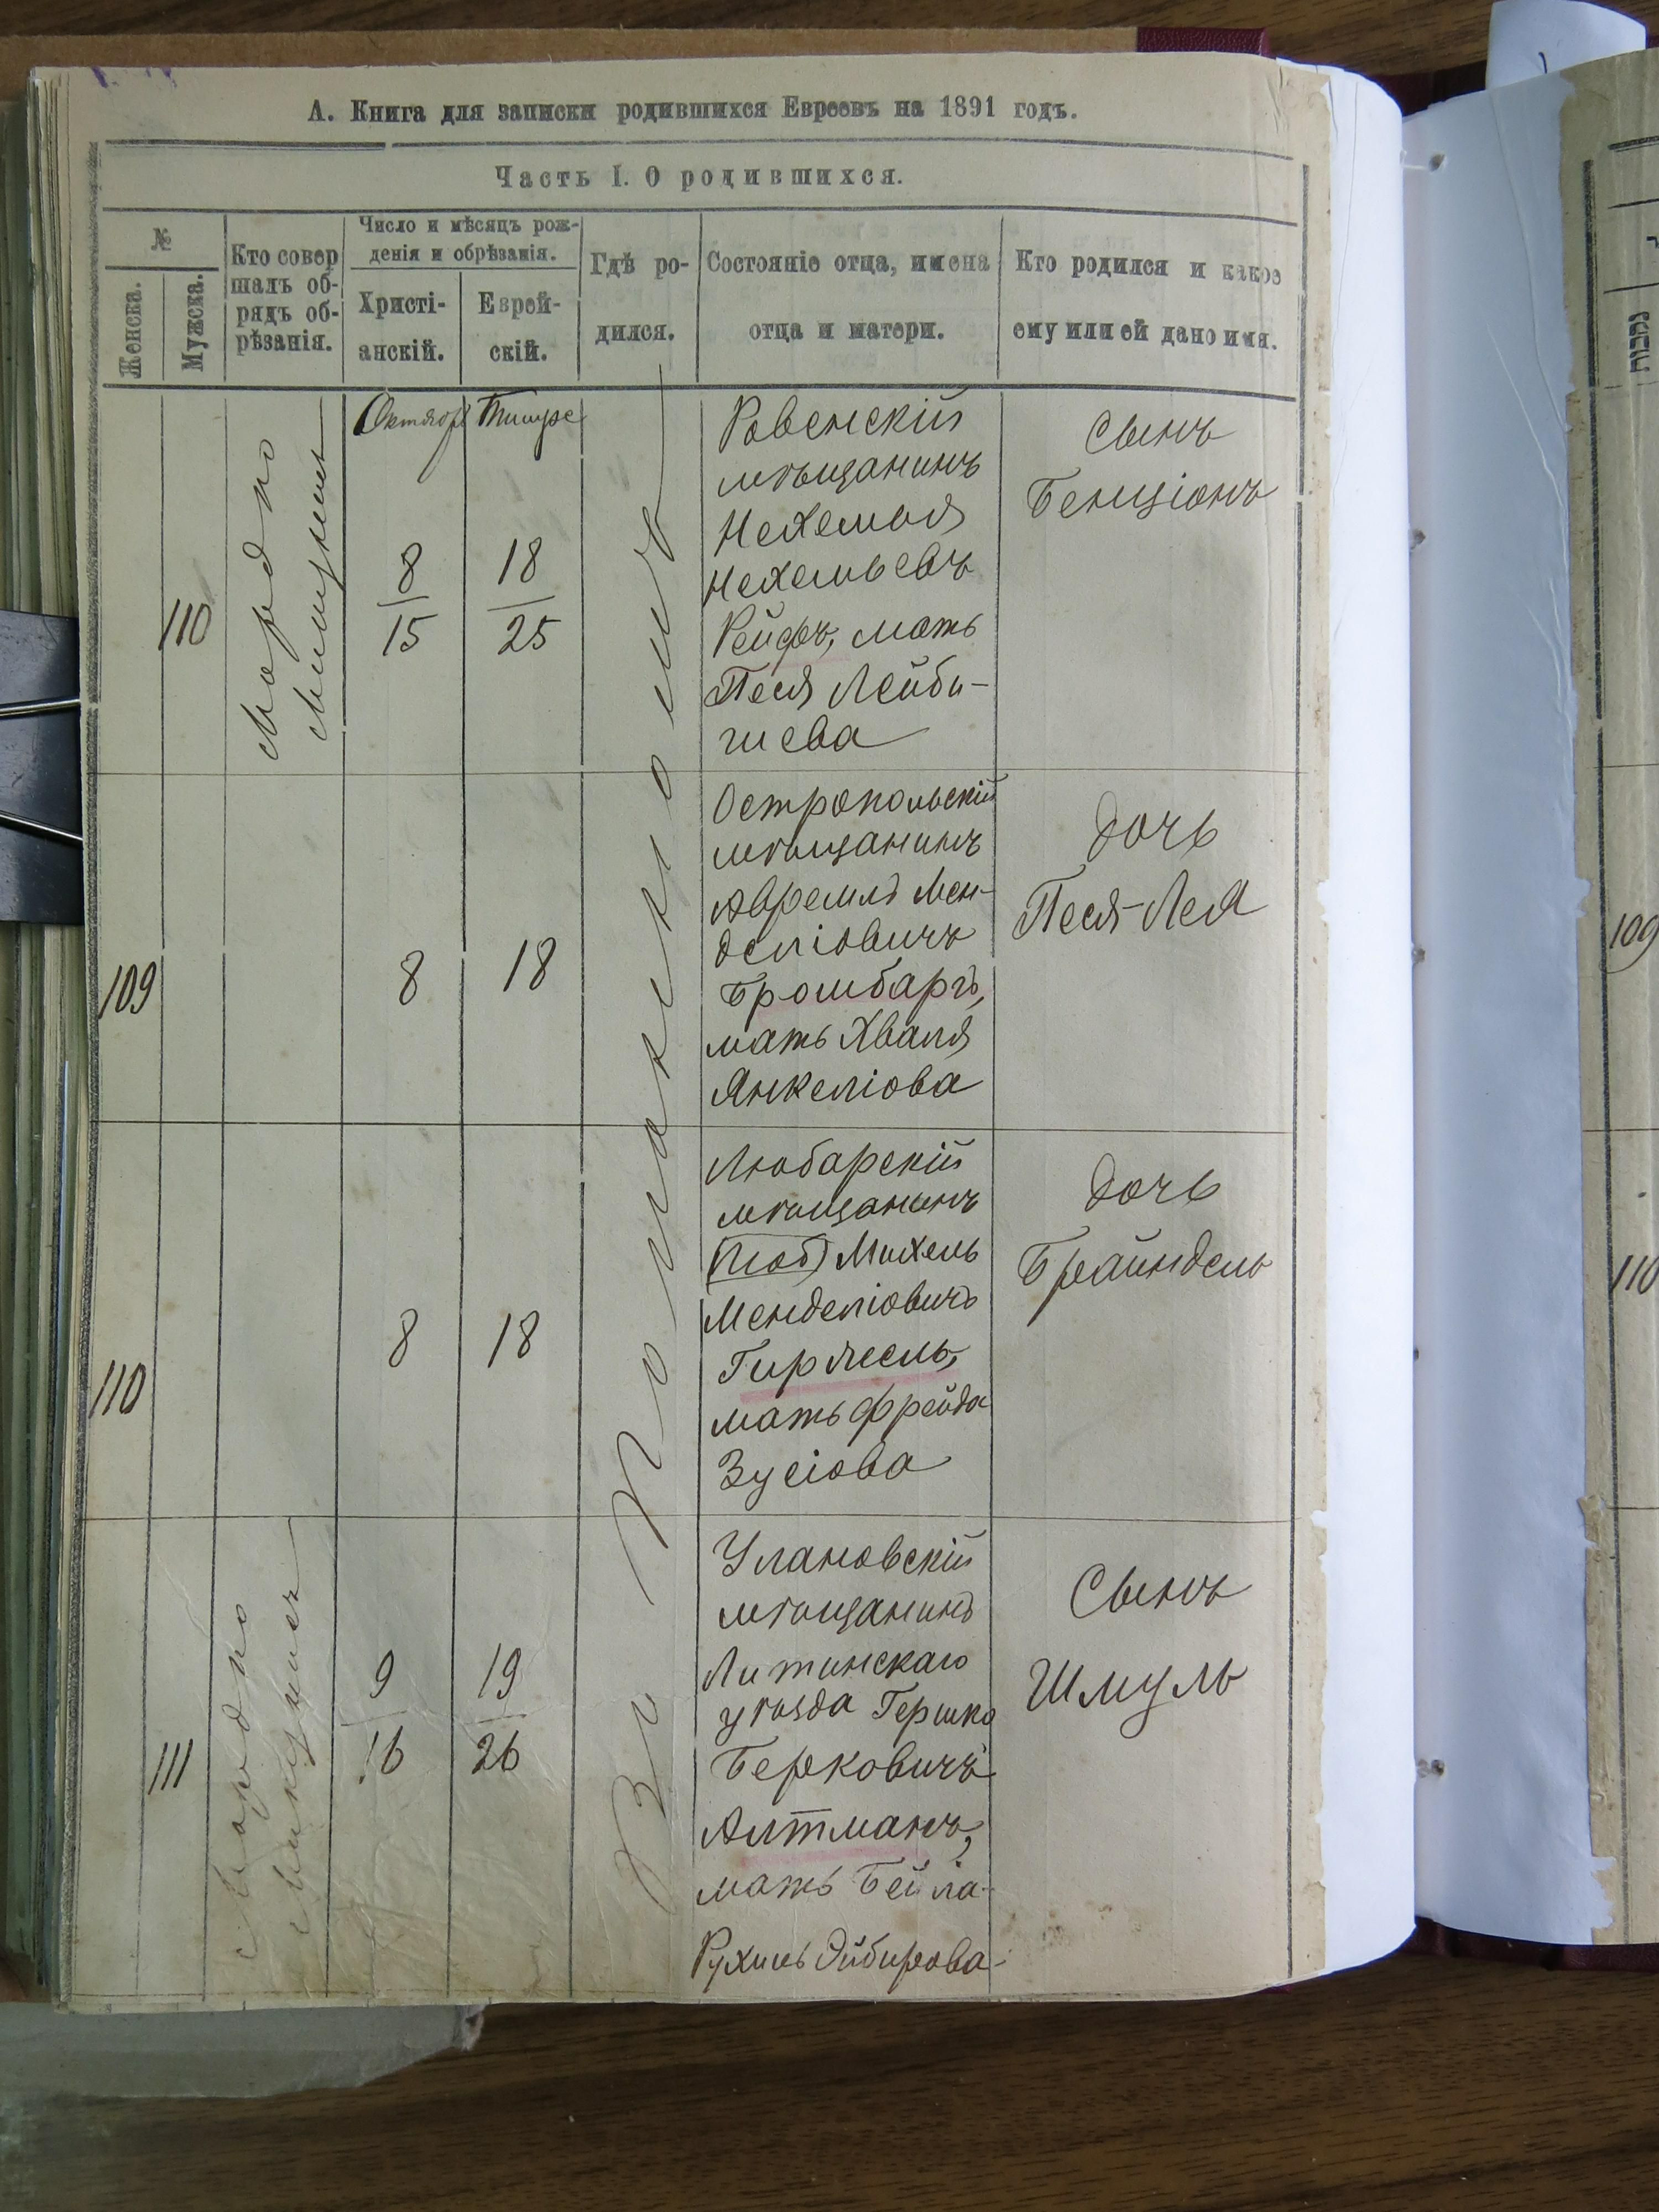 А. Книга для записки родившихся Евреевъ на 1891 годъ.
Часть I. О родившихся.
№
Женска.
Мужска.
Кто совер
шалъ об-
рядъ об-
рѣзанія.
Число и мѣсяцъ рож-
денія и обрѣзанія.
Христі-
анскій.
Еврей-
скій.
Гдѣ ро-
дился.
Состояніе отца, имена
отца и матери.
Кто родился и какое
ему или ей дано имя.
Мордко
110
8
15
18
25
Ровенскій
мѣщанинъ
Нехемья
Нехемьевъ
Рейфъ, мать
Песя Лейби-
шева
Сынъ
Бенціонъ
109
8
18
Остропольскій
мѣщанинъ
Авремъ Мен-
деліовичъ
Бромбаргъ,
мать Хваля
Янкеліова
дочь
Песя-Лея
110
8
18
Любарскій
мѣщанинъ
Михель
Менделіовичъ
мать Фрейда
Зусіова
дочь
Брайндель
Мордко
111
9
16
19
26
Улановскій
мѣщанинъ
Литинскаго
уѣзда Гершко
Берковичъ
Алтманъ,
мать Бейла-
Рухль
Сынъ
Шмуль
109
110